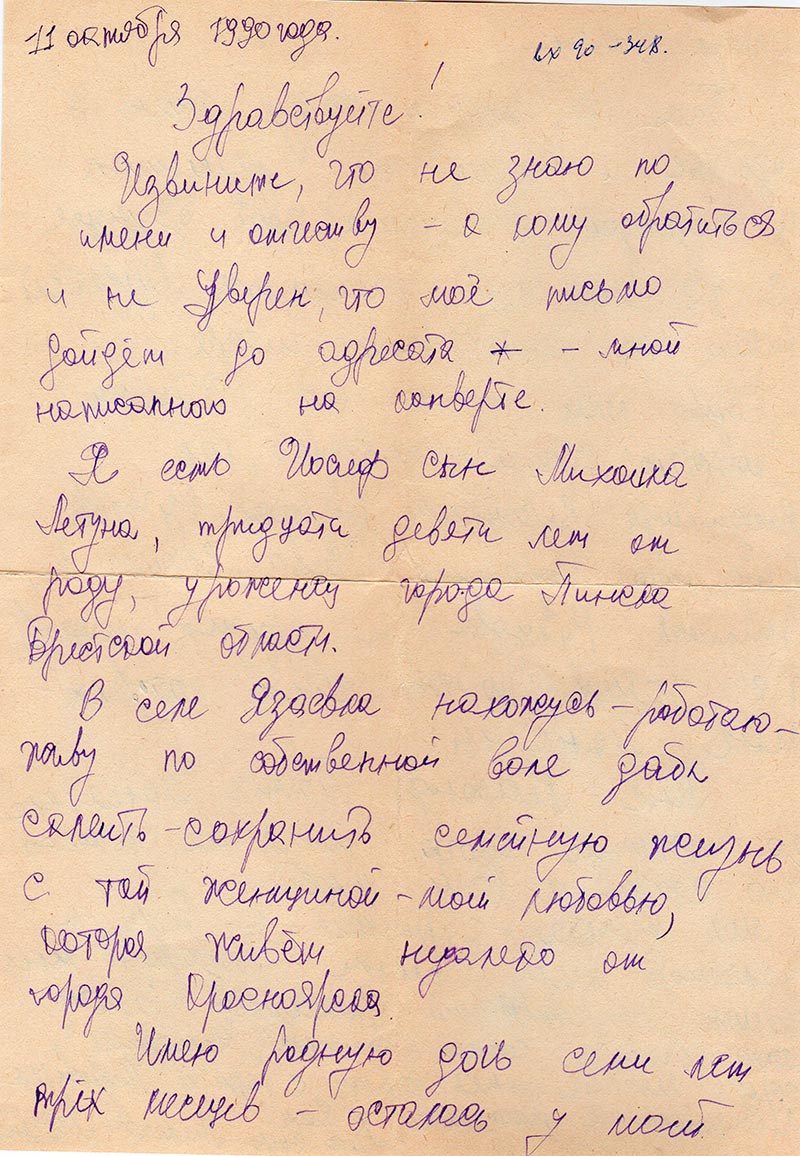 11 октября 1990 года.
вх 90 - 348.
Здравствуйте!
Извините, что не знаю по
имени и отчеству - к кому обратиться
и не уверен, что моё письмо
дойдёт до адресата - мной
написанного на конверте.
Я есть Иосиф сын Михаила
Летуна, тридцати девяти лет от
роду, уроженец города Пинска
Брестской области.
В селе Язаевка нахожусь - работаю -
живу по собственной воле дабы
склеить - сохранить семейную жизнь
с той женщиной - моей любовью,
которая живёт недалеко от
города Красноярска.
Имею родную дочь семи лет
трёх месяцев - осталась у моей